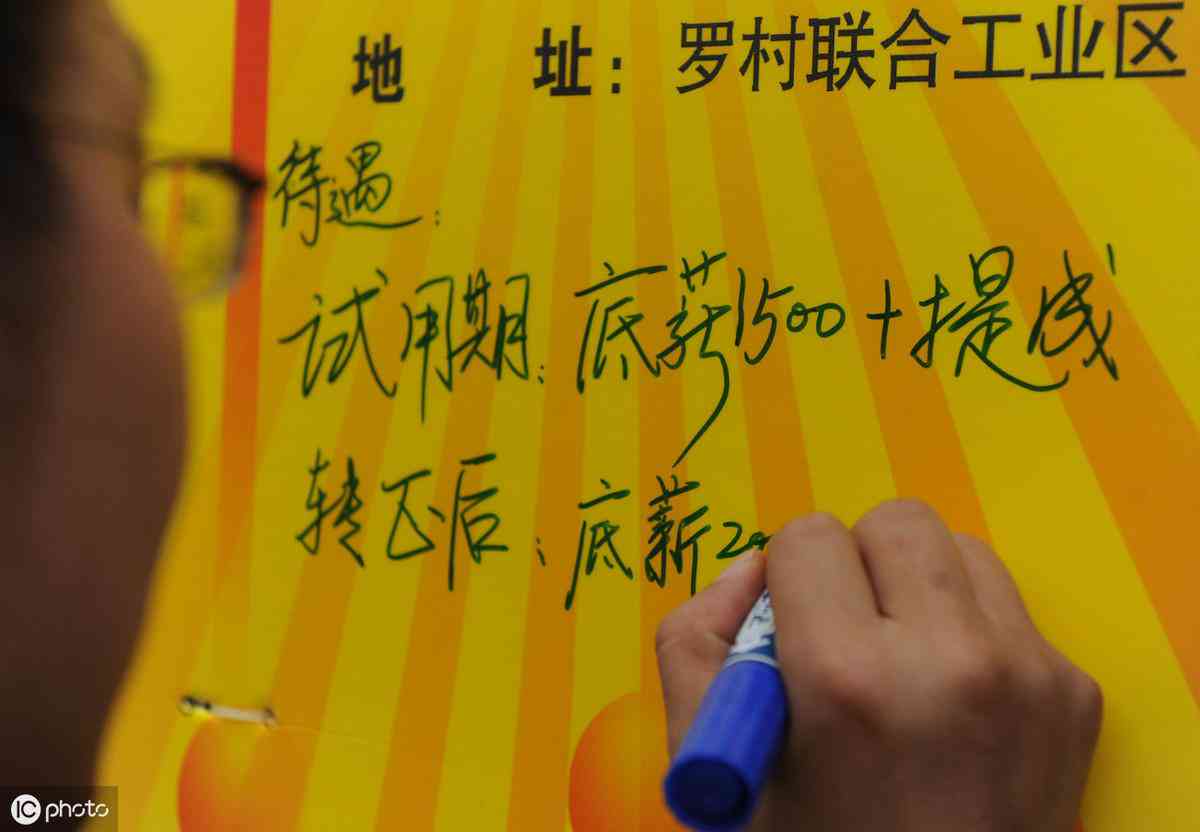 地 址：罗村联合工业区
待遇：
试用期：底薪1500+提成
转正后：底薪20
IC photo